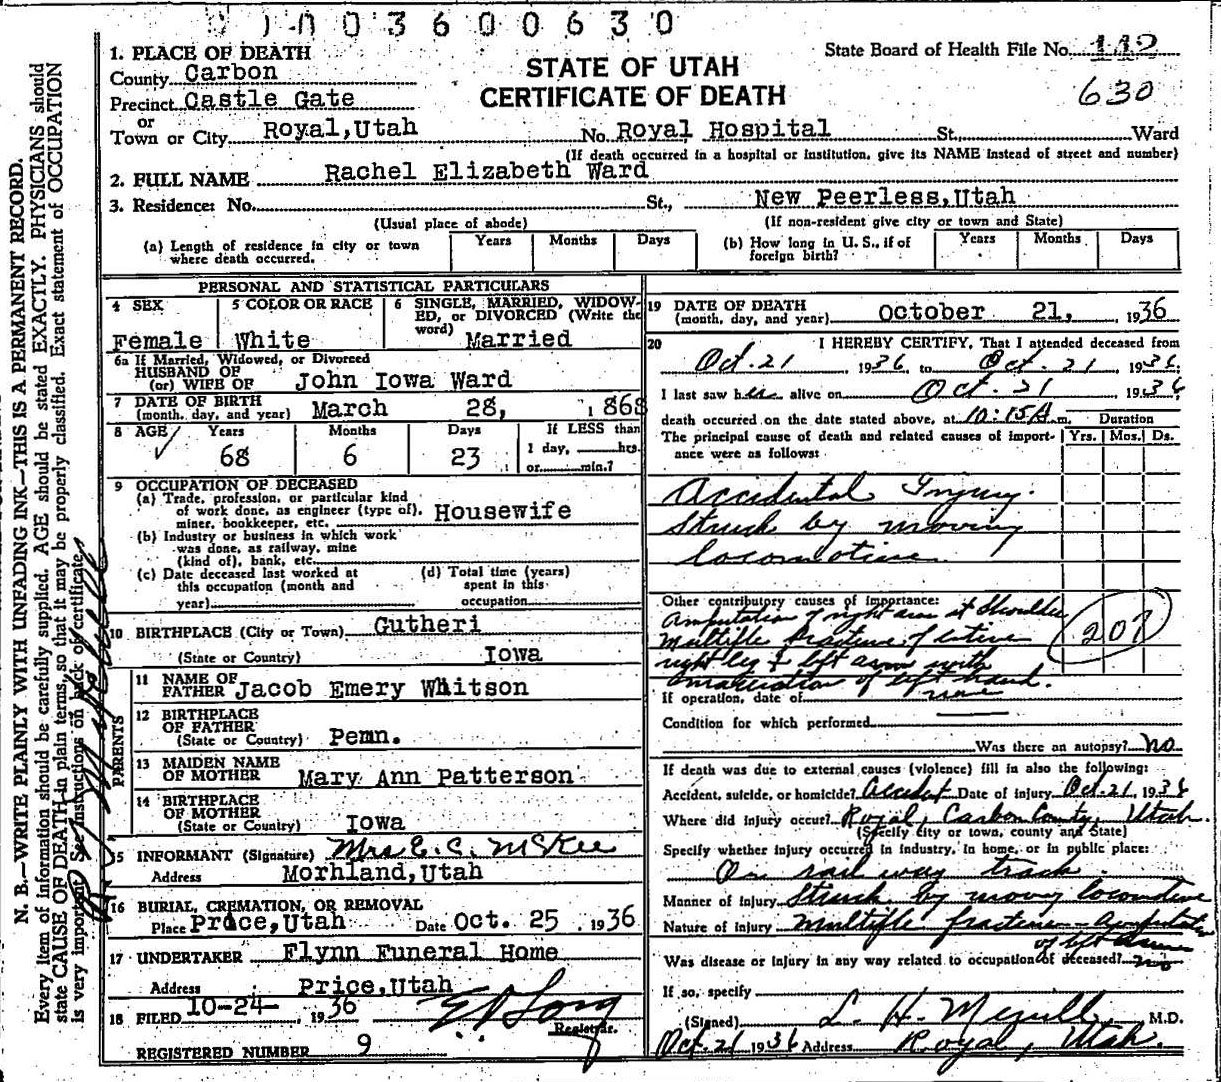 003600630
1. PLACE OF DEATH
County Carbon
Precinct Castle Gate
or
Town or City Royal,Utah No. Royal Hospital St. Ward
(If death occurred in a hospital or institution, give its NAME instead of street and number)
STATE OF UTAH
CERTIFICATE OF DEATH
State Board of Health File No. 112
630
2. FULL NAME Rachel Elizabeth Ward
3. Residence: No. St., New Peerless,Utah
(Usual place of abode) (If non-resident give city or town and State)
(a) Length of residence in city or town where death occurred. Years Months Days
(b) How long in U. S., if of foreign birth? Years Months Days
PERSONAL AND STATISTICAL PARTICULARS
4 SEX Female
5 COLOR OR RACE White
6 SINGLE, MARRIED, WIDOWED, or DIVORCED (Write the word) Married
6a If Married, Widowed, or Divorced
HUSBAND OF
(or) WIFE OF John Iowa Ward
7 DATE OF BIRTH
(month, day, and year) March 28, 1868
8 AGE Years Months Days If LESS than
68 6 23 1 day, hrs.
or min.?
9 OCCUPATION OF DECEASED
(a) Trade, profession, or particular kind
of work done, as engineer (type of), Housewife
miner, bookkeeper, etc.
(b) Industry or business in which work
was done, as railway, mine
(kind of), bank, etc.
(c) Date deceased last worked at
this occupation (month and
year)
(d) Total time (years)
spent in this
occupation
10 BIRTHPLACE (City or Town) Gutheri
(State or Country) Iowa
PARENTS
11 NAME OF
FATHER Jacob Emery Whitson
12 BIRTHPLACE
OF FATHER
(State or Country) Penn.
13 MAIDEN NAME
OF MOTHER Mary Ann Patterson
14 BIRTHPLACE
OF MOTHER
(State or Country) Iowa
15 INFORMANT (Signature) Mrs E. C. McKee
Address Morhland,Utah
16 BURIAL, CREMATION, OR REMOVAL
Place Price,Utah Date Oct. 25, 1936
17 UNDERTAKER Flynn Funeral Home
Address Price,Utah
18 FILED 10-24-, 1936
Registrar.
REGISTERED NUMBER 9
19 DATE OF DEATH
(month, day, and year) October 21, , 1936
20 I HEREBY CERTIFY, That I attended deceased from
Oct. 21, 1936, to Oct. 21, 1936;
I last saw her alive on Oct. 21, 1936
death occurred on the date stated above, at 10:15A m. Duration
The principal cause of death and related causes of importance were as follows: Yrs. Mos. Ds.
Accidental Injury.
Struck by moving
locomotive
Other contributory causes of importance:
Amputation of right arm at Shoulder
Multiple fracture of entire
right leg & left arm with
of left hand.
207
If operation, date of none
Condition for which performed
Was there an autopsy? no
If death was due to external causes (violence) fill in also the following:
Accident, suicide, or homicide? Accident Date of injury Oct. 21, 1936
Where did injury occur? Royal, Carbon County, Utah.
(Specify city or town, county and State)
Specify whether injury occurred in industry, in home, or in public place:
On rail way track.
Manner of injury Struck by moving locomotive
Nature of injury Multiple fracture - Amputation
of left arm
Was disease or injury in any way related to occupation of deceased? no
If so, specify
(Signed) L. H. M.D.
Oct. 21 1936 Address Royal, Utah.
N. B.—WRITE PLAINLY WITH UNFADING INK—THIS IS A PERMANENT RECORD.
Every item of information should be carefully supplied. AGE should be stated EXACTLY. PHYSICIANS should
state CAUSE OF DEATH in plain terms, so that it may be properly classified. Exact statement of OCCUPATION
is very important. See instructions on back of certificate.